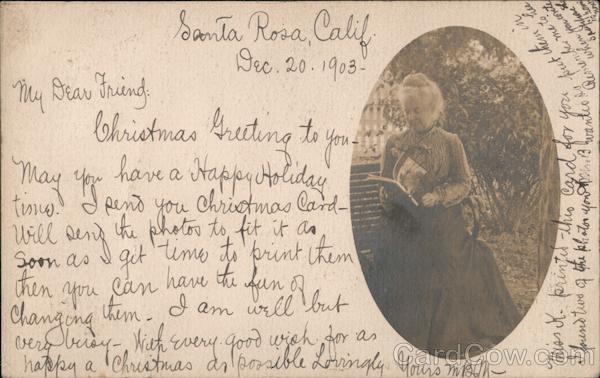 Santa Rosa, Calif.
Dec. 20. 1903-
My Dear Friend:
Christmas Greeting to you-
May you have a Happy Holiday
time. I send you Christmas Card-
Will send the photos to fit it as
soon as I get time to print them
then you can have the fun of
changing them. I am well but
very busy- With every good wish for as
happy a Christmas as possible Lovingly Yours
Miss K- printed this card for you
I found two of the photos you
CardCow.com